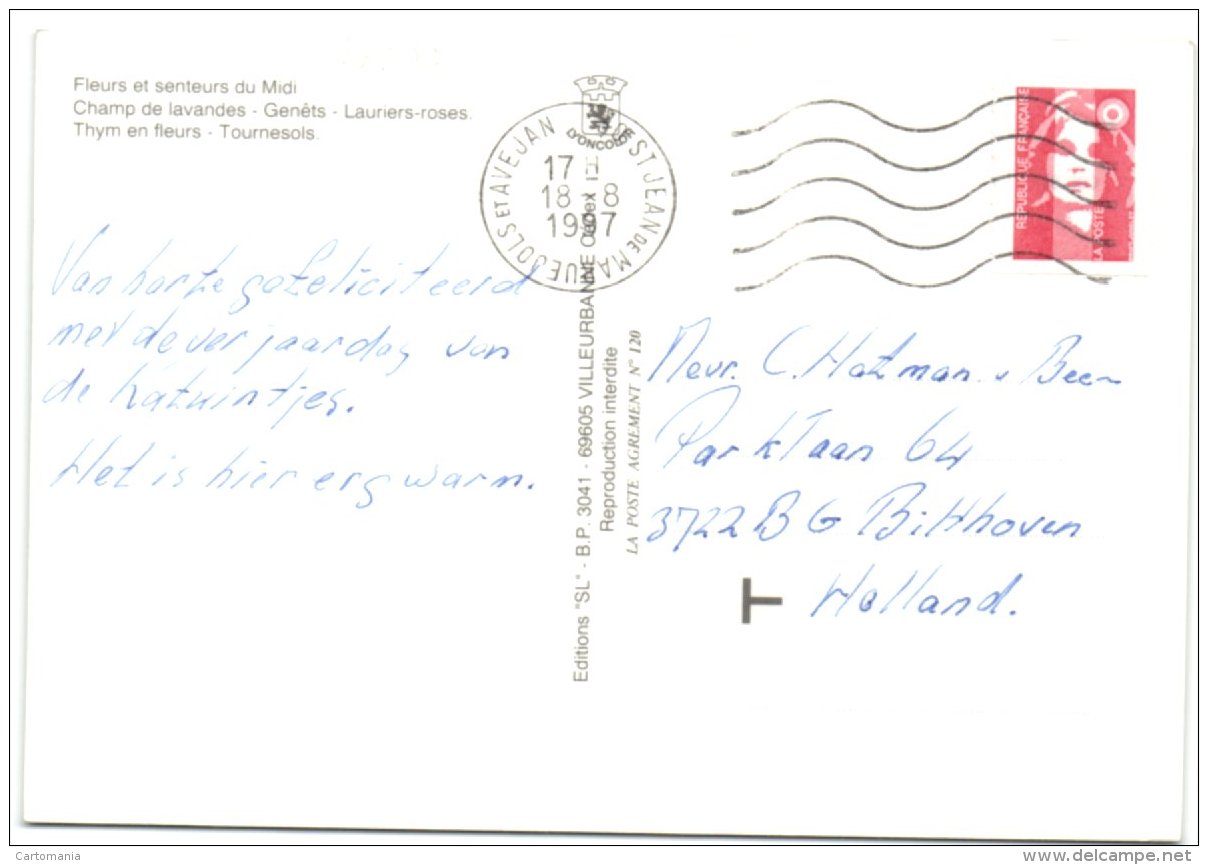 Fleurs et senteurs du Midi
Champ de lavandes - Genêts - Lauriers-roses.
Thym en fleurs - Tournesols.
Van harte gefeliciteerd
met de verjaardag van
de Katuintjes.
Het is hier erg warm.
LYONCOLOR
ST JEAN DE MARUEJOLS ET AVEJAN
17 H
18 8
1997
Editions "SL" - B.P. 3041 - 69605 VILLEURBANNE Cedex
Reproduction interdite
LA POSTE AGREMENT N° 120
REPUBLIQUE FRANÇAISE
LA POSTE
Mevr. C. Hatzman v Been
Parklaan 64
3722 BG Bilthoven
Holland.
T
Cartomania
www.delcampe.net